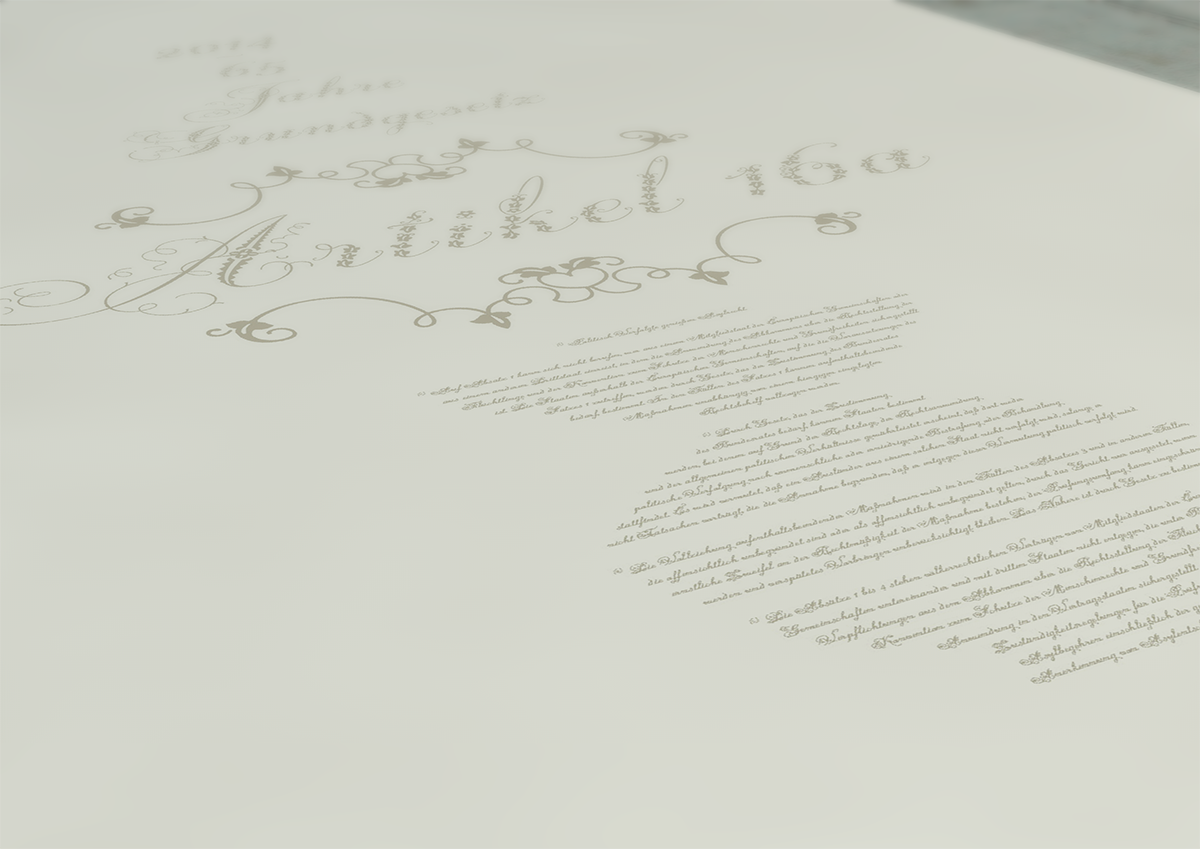 2014
65
Jahre
Grundgesetz
Artikel 16a
(1) Politisch Verfolgte genießen Asylrecht.
(2) Auf Absatz 1 kann sich nicht berufen, wer aus einem Mitgliedstaat der Europäischen Gemeinschaften oder
aus einem anderen Drittstaat einreist, in dem die Anwendung des Abkommens über die Rechtsstellung der
Flüchtlinge und der Konvention zum Schutze der Menschenrechte und Grundfreiheiten sichergestellt
ist. Die Staaten außerhalb der Europäischen Gemeinschaften, auf die die Voraussetzungen des
Satzes 1 zutreffen, werden durch Gesetz, das der Zustimmung des Bundesrates
bedarf, bestimmt. In den Fällen des Satzes 1 können aufenthaltsbeendende
Maßnahmen unabhängig von einem hiergegen eingelegten
Rechtsbehelf vollzogen werden.
(3) Durch Gesetz, das der Zustimmung
des Bundesrates bedarf, können Staaten bestimmt
werden, bei denen auf Grund der Rechtslage, der Rechtsanwendung
und der allgemeinen politischen Verhältnisse gewährleistet erscheint, daß dort weder
politische Verfolgung noch unmenschliche oder erniedrigende Bestrafung oder Behandlung
stattfindet. Es wird vermutet, daß ein Ausländer aus einem solchen Staat nicht verfolgt wird, solange er
nicht Tatsachen vorträgt, die die Annahme begründen, daß er entgegen dieser Vermutung politisch verfolgt wird.
(4) Die Vollziehung aufenthaltsbeendender Maßnahmen wird in den Fällen des Absatzes 3 und in anderen Fällen,
die offensichtlich unbegründet sind oder als offensichtlich unbegründet gelten, durch das Gericht nur ausgesetzt, wenn
ernstliche Zweifel an der Rechtmäßigkeit der Maßnahme bestehen; der Prüfungsumfang kann eingeschrän
werden und verspätetes Vorbringen unberücksichtigt bleiben. Das Nähere ist durch Gesetz zu bestim
(5) Die Absätze 1 bis 4 stehen völkerrechtlichen Verträgen von Mitgliedstaaten der Eur
Gemeinschaften untereinander und mit dritten Staaten nicht entgegen, die unter B
Verpflichtungen aus dem Abkommen über die Rechtsstellung der Flüch
Konvention zum Schutze der Menschenrechte und Grundfr
Anwendung in den Vertragsstaaten sichergestellt
Zuständigkeitsregelungen für die Prüf
Asylbegehren einschließlich der g
Anerkennung von Asylentsch